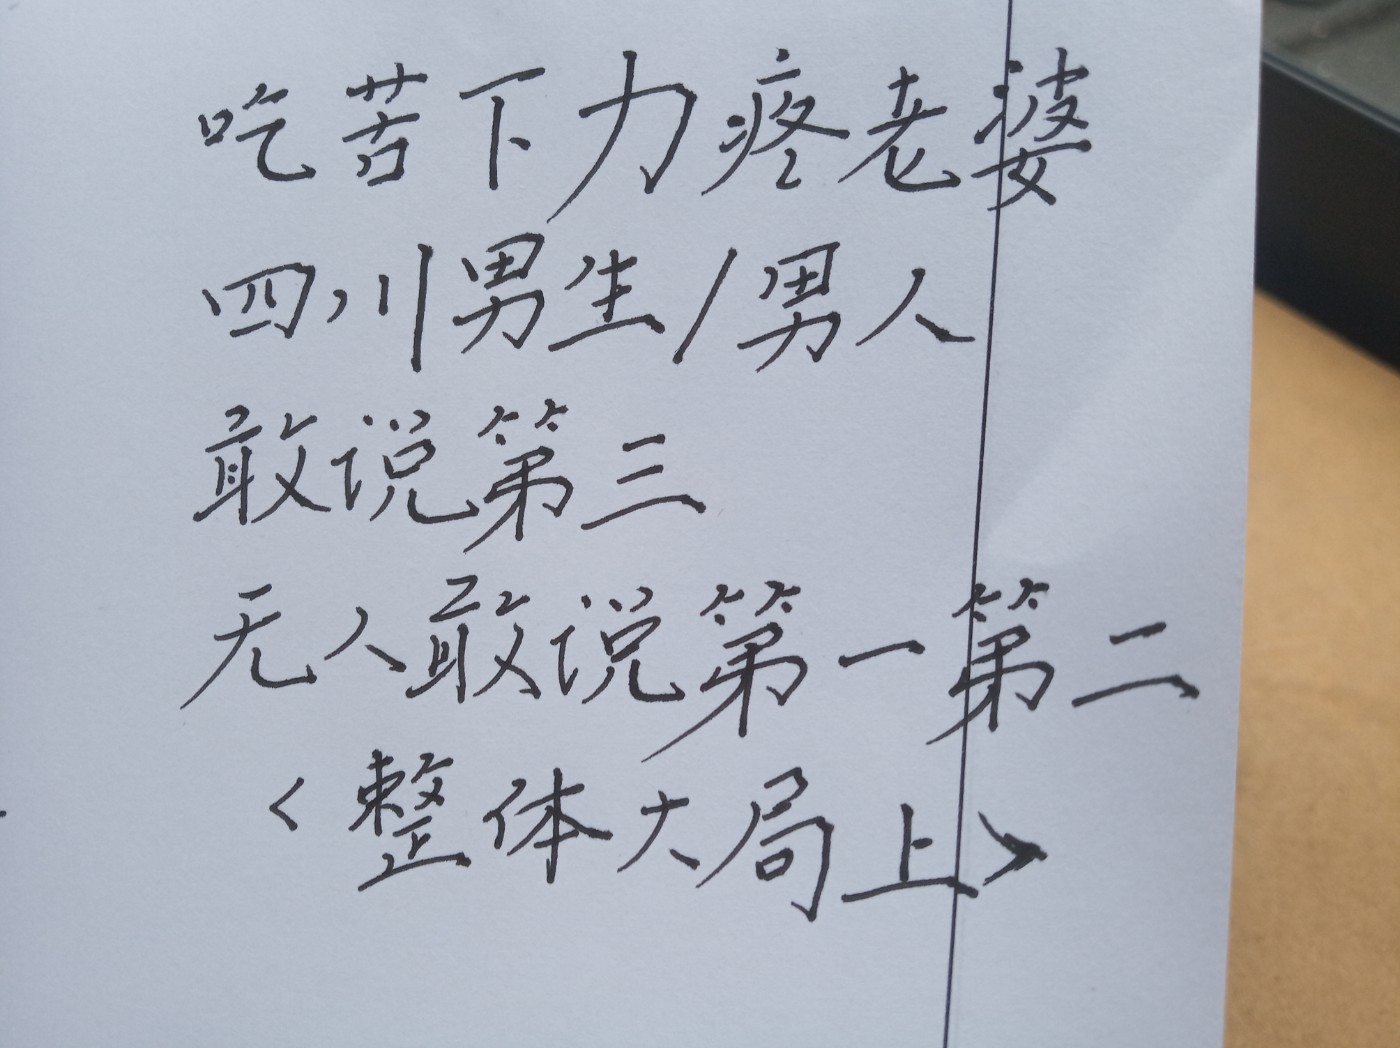 吃苦下力疼老婆
四川男生/男人
敢说第三
无人敢说第一第二
<整体大局上>